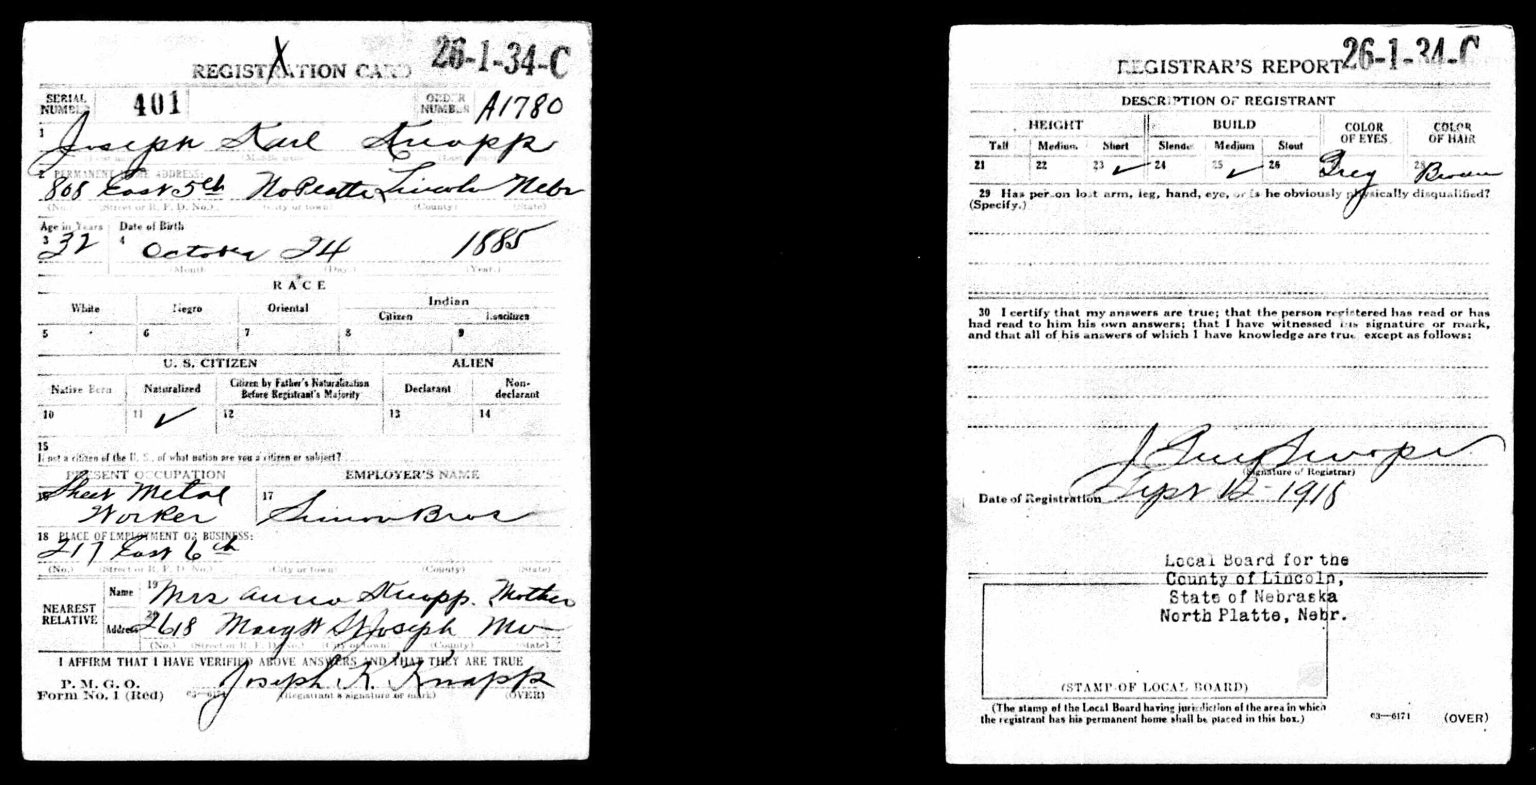 REGISTRATION CARD 26-1-34-C
SERIAL NUMBER 401 ORDER NUMBER A1780
1 Joseph Karl Knapp
2 PERMANENT HOME ADDRESS:
808 East 5th No Platte Lincoln Nebr
(No.) (Street or R. F. D. No.) (City or town) (County) (State)
Age in Years Date of Birth
3 32 4 October 24 1885
(Month) (Day) (Year)
RACE
White Negro Oriental Indian
Citizen Noncitizen
5 6 7 8 9
U. S. CITIZEN ALIEN
Native Born Naturalized Citizen by Father's Naturalization Before Registrant's Majority Declarant Non-declarant
10 11 ✓ 12 13 14
15
If not a citizen of the U. S., of what nation are you a citizen or subject?
PRESENT OCCUPATION EMPLOYER'S NAME
16 Sheet Metal 17
Worker Simon Bros
18 PLACE OF EMPLOYMENT OR BUSINESS:
217 East 6th
(No.) (Street or R. F. D. No.) (City or town) (County) (State)
NEAREST RELATIVE
Name 19 Mrs Anna Knapp. Mother
Address 20 2618 Mary St St Joseph Mo
(No.) (Street or R. F. D. No.) (City or town) (County) (State)
I AFFIRM THAT I HAVE VERIFIED ABOVE ANSWERS AND THAT THEY ARE TRUE
P. M. G. O.
Form No. 1 (Red) 03—6171 Joseph K. Knapp
(Registrant's signature or mark) (OVER)
REGISTRAR'S REPORT 26-1-34-C
DESCRIPTION OF REGISTRANT
HEIGHT BUILD COLOR OF EYES COLOR OF HAIR
Tall Medium Short Slender Medium Stout
21 22 23 ✓ 24 25 ✓ 26 Grey 28 Brown
29 Has person lost arm, leg, hand, eye, or is he obviously physically disqualified?
(Specify.)
30 I certify that my answers are true; that the person registered has read or has
had read to him his own answers; that I have witnessed his signature or mark,
and that all of his answers of which I have knowledge are true, except as follows:
J Guy Swope
(Signature of Registrar)
Date of Registration Sept 12-1918
Local Board for the
County of Lincoln,
State of Nebraska
North Platte, Nebr.
(STAMP OF LOCAL BOARD)
(The stamp of the Local Board having jurisdiction of the area in which
the registrant has his permanent home shall be placed in this box.)
03—6171 (OVER)